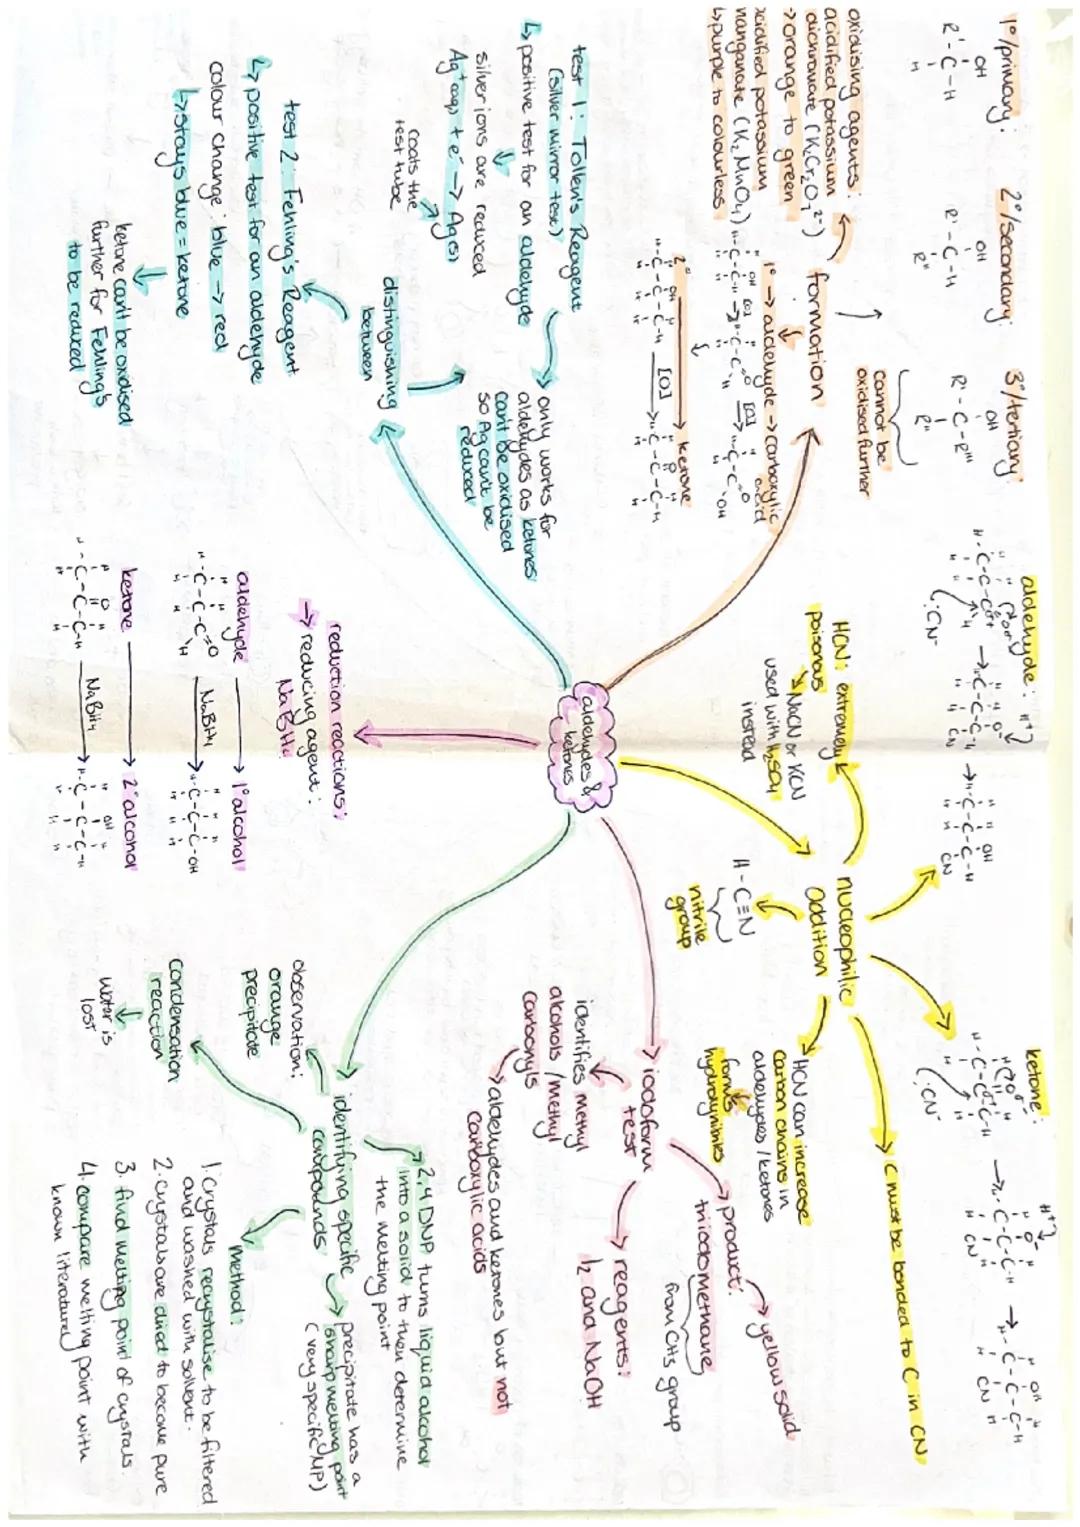 1°/primary:
OH
R'-C-H
H
2°/secondary:
OH
R'-C-H
R"
3°/tertiary:
OH
R'-C-R'''
R"
cannot be
oxidised further
oxidising agents:
acidified potassium
dichromate (K₂Cr₂O₇²⁻)
→orange to green
acidified potassium
manganate (K₂MnO₄)
↳purple to colourless
formation
1° → aldehyde → carboxylic
acid
[O]
[O]
2° → ketone
[O]
aldehydes &
ketones
distinguishing
between
test 1: Tollen's Reagent
(silver mirror test)
↳ positive test for an aldehyde
silver ions are reduced
Ag⁺(aq) + e⁻ → Ag(s)
coats the
test tube
only works for
aldehydes as ketones
can't be oxidised
so Ag can't be
reduced
test 2: Fehling's Reagent
↳ positive test for an aldehyde
colour change: blue → red
↳ stays blue = ketone
ketone can't be oxidised
further for Fehling's
to be reduced
reduction reactions:
→ reducing agent:
NaBH₄
aldehyde → 1° alcohol
NaBH₄
ketone → 2° alcohol
NaBH₄
aldehyde:
:CN⁻
ketone:
:CN⁻
nucleophilic
addition
HCN: extremely
poisonous
↳ NaCN or KCN
used with H₂SO₄
instead
H-C≡N
nitrile
group
HCN can increase
carbon chains in
aldehydes/ketones
forms
hydroxynitriles
C must be bonded to C in CN
iodoform
test
identifies methyl
alcohols/methyl
carbonyls
→ aldehydes and ketones but not
carboxylic acids
product:
triiodomethane
from CH₃ group
yellow solid
reagents:
I₂ and NaOH
identifying specific
compounds
2,4 DNP turns liquid alcohol
into a solid to then determine
the melting point
precipitate has a
sharp melting point
(very specific MP)
observation:
orange
precipitate
condensation
reaction
water is
lost
method:
1. crystals recrystalise to be filtered
and washed with solvent.
2. crystals are dried to become pure
3. find melting point of crystals.
4. compare melting point with
known literature